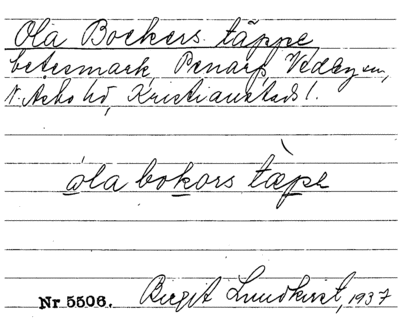 Ola Bockers täppe,
betesmark, Penarp, Vedby sn,
N. Åsbo hd, Kristianstads l.
óla bokors tæ̀pe
Nr 5506. Birgit Lundkvist, 1937